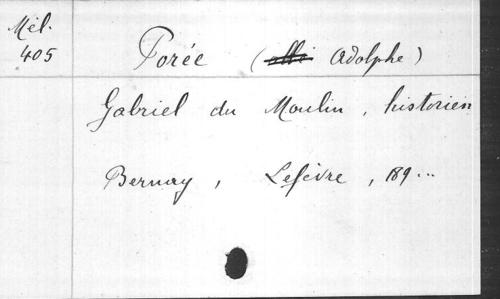 Mél.
405
Porée (Adolphe)
Gabriel du Moulin, historien
Bernay, Lefèvre, 189...